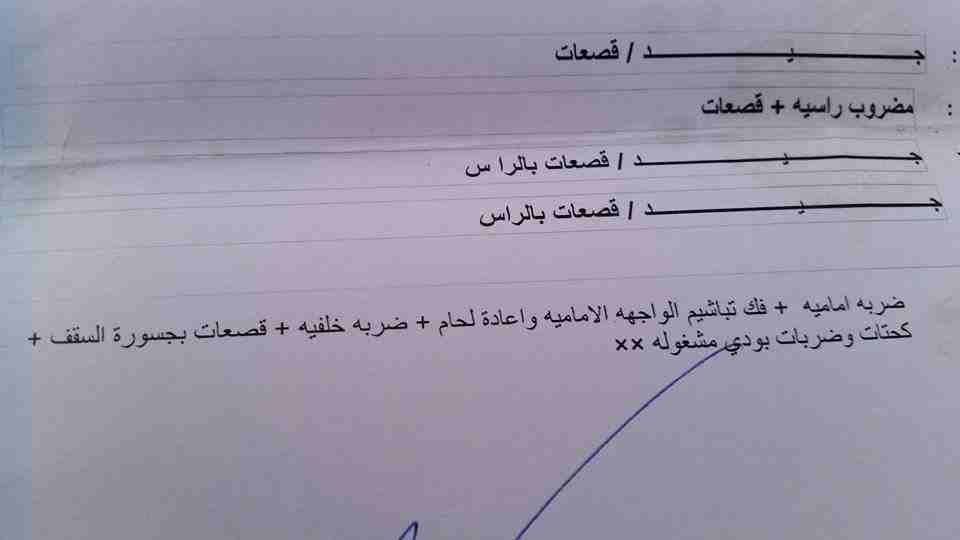 : جـــــيـــــد / قصعات
: مضروب راسيه + قصعات
جـــــيـــــد / قصعات بالرا س
جـــــيـــــد / قصعات بالراس
ضربه اماميه + فك تباشيم الواجهه الاماميه واعادة لحام + ضربه خلفيه + قصعات بجسورة السقف +
كحتات وضربات بودي مشغوله ××